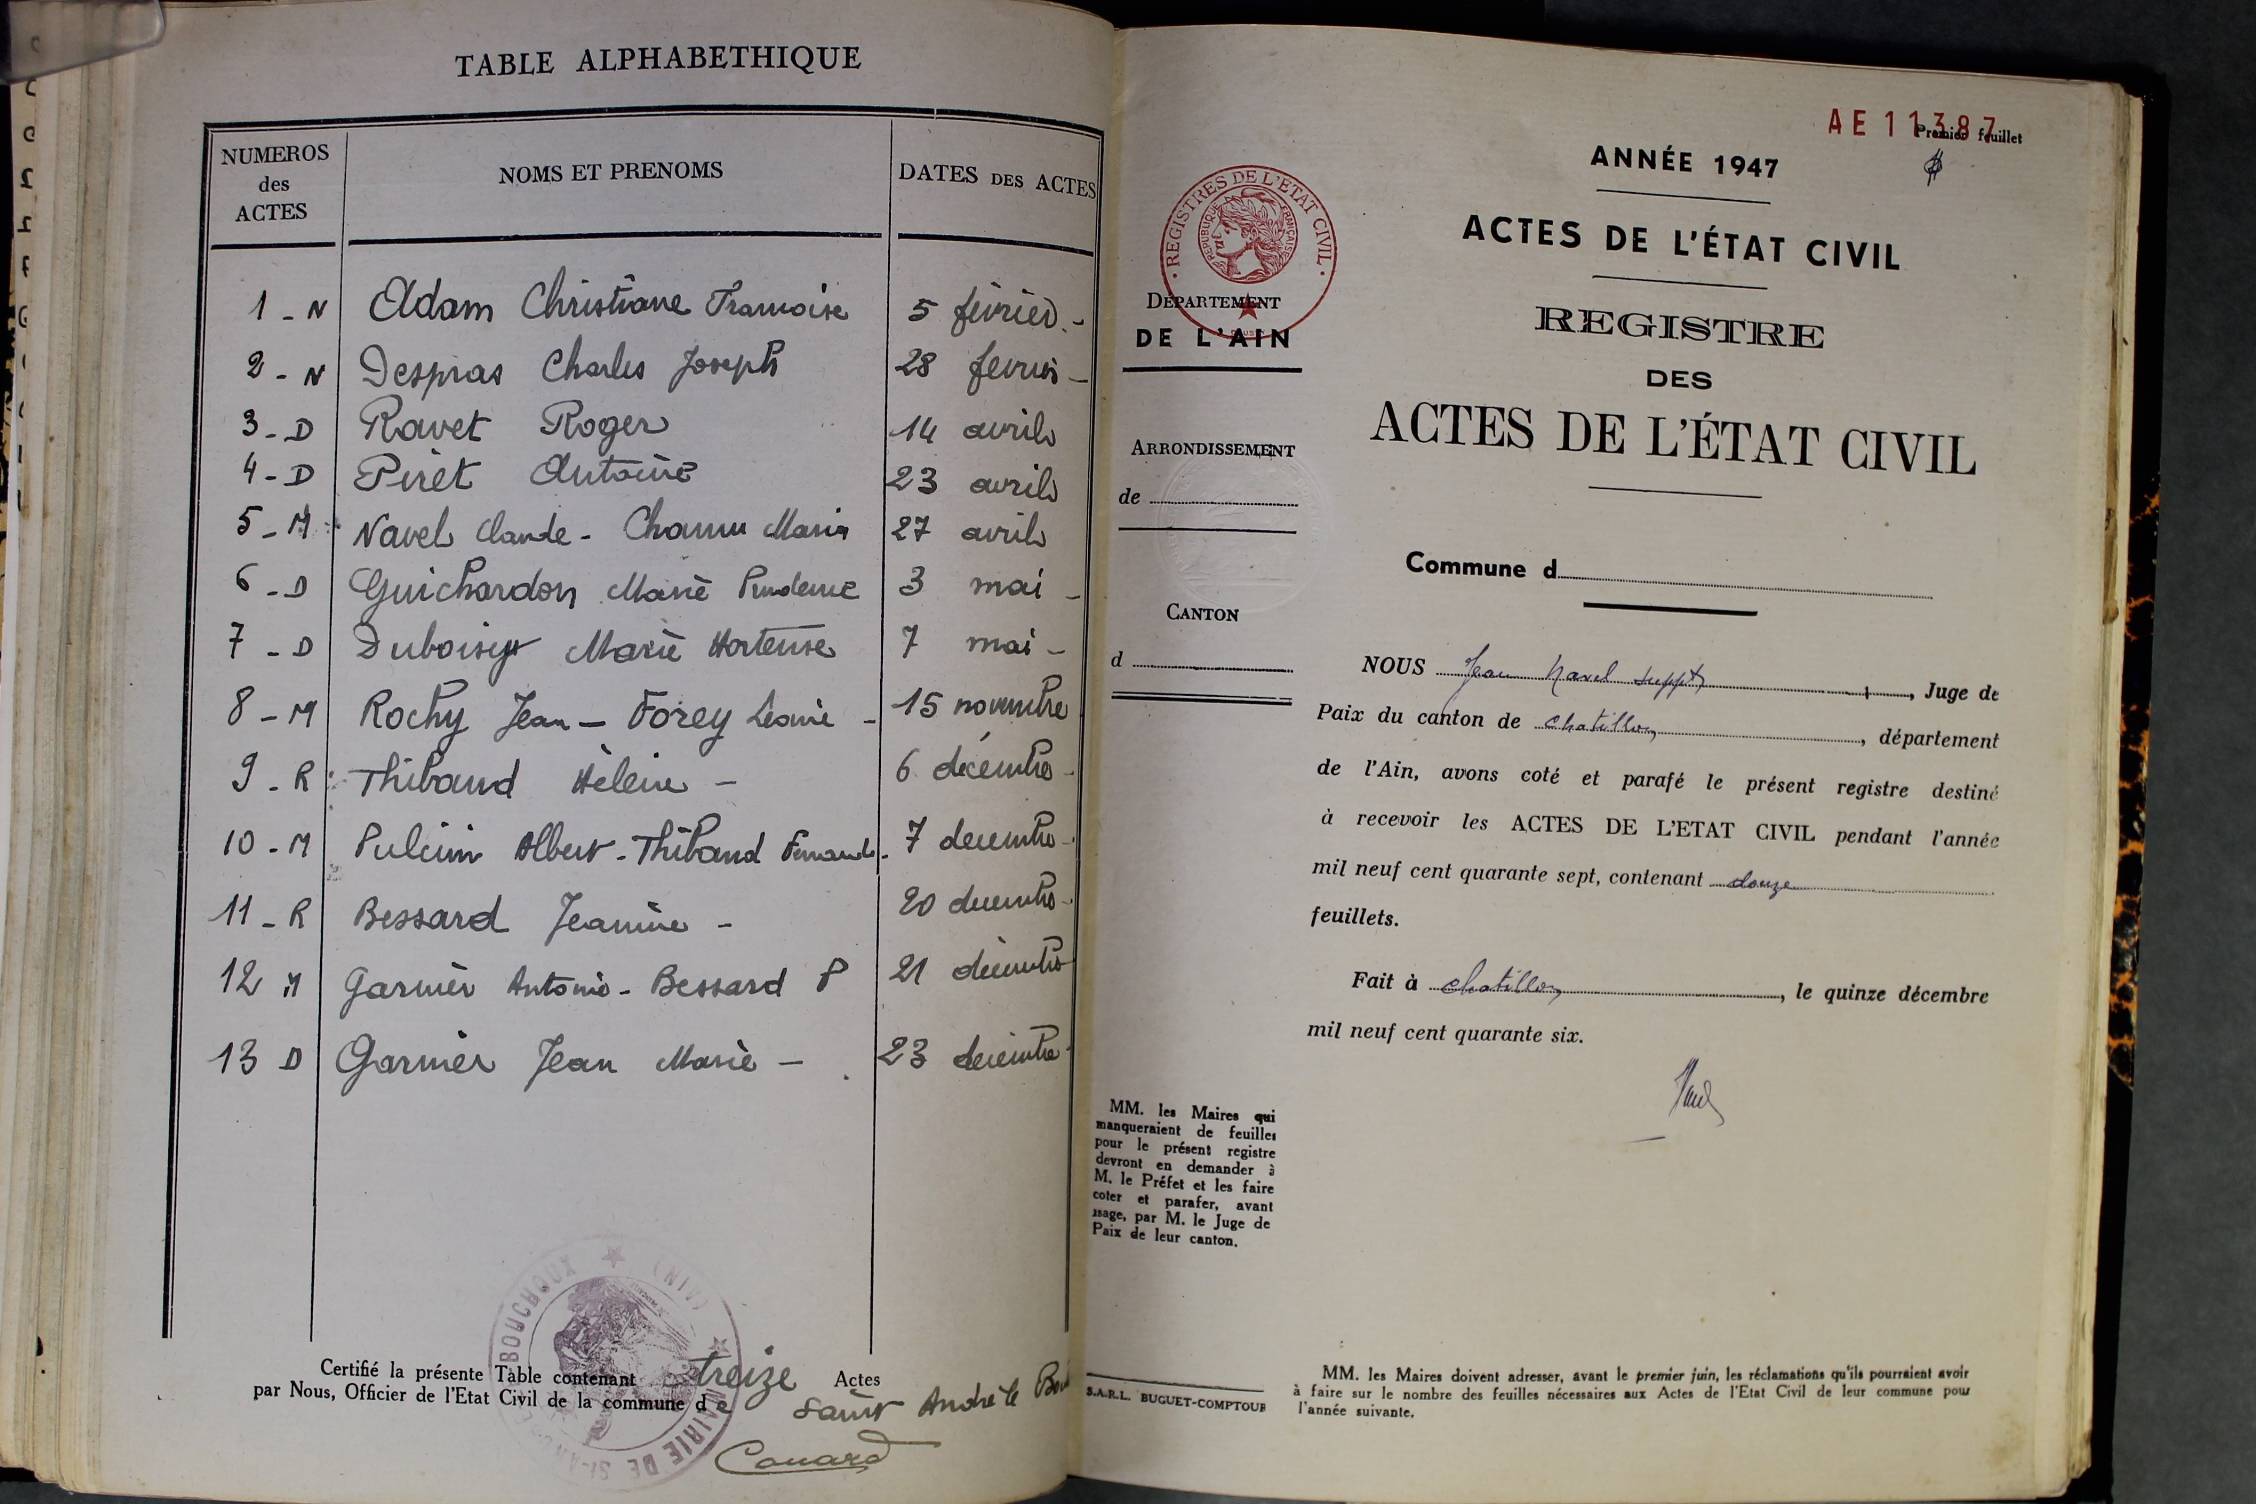 TABLE ALPHABETHIQUE
NUMEROS des ACTES NOMS ET PRENOMS DATES DES ACTES
1 - N Adam Christiane Francoise 5 février -
2 - N Despras Charles Joseph 28 fevrier -
3 - D Ravet Roger 14 avril
4 - D Piret Antoine 23 avril
5 - M Navel Claude - Marie 27 avril
6 - D Guichardon Marie Prudence 3 mai -
7 - D Marie Hortense 7 mai -
8 - M Rochy Jean - Forey Léonie - 15 novembre
9 - R Thibaud Hélène - 6 décembre -
10 - M Pulcini Albert - Thibaud Fernande - 7 decembre -
11 - R Bessard Jeanine - 20 decembre -
12 M Garnier Antonin - Bessard P 21 décembre
13 D Garnier Jean Marie - 23 décembre
Certifié la présente Table contenant treize Actes
par Nous, Officier de l'Etat Civil de la commune de Saint André le Bou
MAIRIE DE ST-AN BOUCHOUX (AIN)
Couard
AE 11387
Premier feuillet
REGISTRES DE L'ETAT CIVIL
REPUBLIQUE FRANÇAISE
DÉPARTEMENT
DE L'AIN
ARRONDISSEMENT
de
CANTON
d
MM. les Maires qui
manqueraient de feuilles
pour le présent registre
devront en demander à
M. le Préfet et les faire
coter et parafer, avant
usage, par M. le Juge de
Paix de leur canton.
S.A.R.L. BUGUET-COMPTOUR
ANNÉE 1947
ACTES DE L'ÉTAT CIVIL
REGISTRE
DES
ACTES DE L'ÉTAT CIVIL
Commune d
NOUS Jean Navel suppt, Juge de
Paix du canton de Chatillon, département
de l'Ain, avons coté et parafé le présent registre destiné
à recevoir les ACTES DE L'ETAT CIVIL pendant l'année
mil neuf cent quarante sept, contenant douze
feuillets.
Fait à Chatillon, le quinze décembre
mil neuf cent quarante six.
MM. les Maires doivent adresser, avant le premier juin, les réclamations qu'ils pourraient avoir
à faire sur le nombre des feuilles nécessaires aux Actes de l'Etat Civil de leur commune pour
l'année suivante.